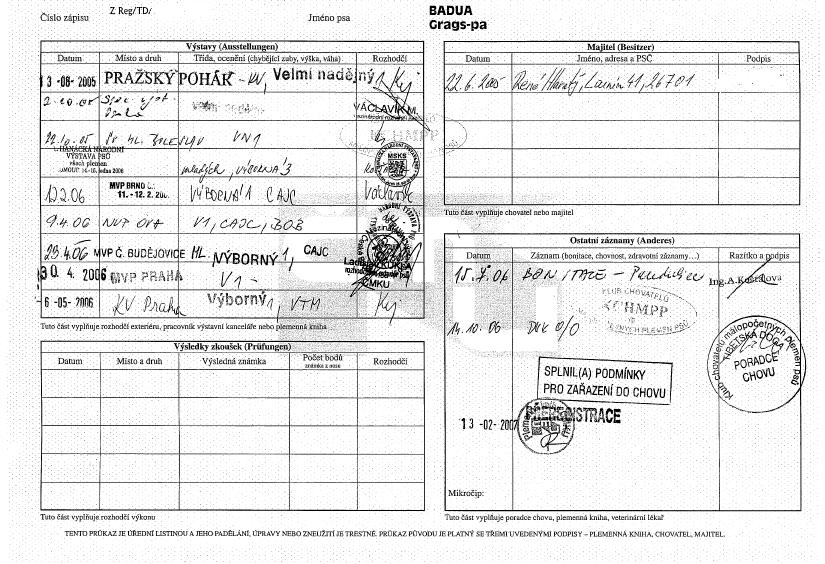 Číslo zápisu
Z Reg/TD/
Jméno psa
BADUA
Grags-pa
Výstavy (Ausstellungen)
Datum Místo a druh Třída, ocenění (chybějící zuby, výška, váha) Rozhodčí
13 -08- 2005 PRAŽSKÝ POHÁR - KV, Velmi nadějný 1
2.10.05
VÁCLAVÍK M.
22.10.05 BOLESLAV VN1
HANÁCKÁ NÁRODNÍ
VÝSTAVA PSŮ
všech plemen
OLOMOUC 14.-15. ledna 2006
mladých, VÝBORNÁ 3
MSKS
12.2.06 MVP BRNO
11. - 12. 2. 2006 VÝBORNÁ 1 CAJC Václavík
9.4.06 NVP OVA V1, CAJC, BOB
29.4.06 MVP Č. BUDĚJOVICE ML. VÝBORNÝ 1, CAJC
30. 4. 2006 MVP PRAHA V1 -
ČMKU
6 -05- 2006 KV Praha Výborný 1, VTM
Tuto část vyplňuje rozhodčí exteriéru, pracovník výstavní kanceláře nebo plemenná kniha
Výsledky zkoušek (Prüfungen)
Datum Místo a druh Výsledná známka Počet bodů
známka z nosu Rozhodčí
Tuto část vyplňuje rozhodčí výkonu
Majitel (Besitzer)
Datum Jméno, adresa a PSČ Podpis
22.6.2005 René 41, 26701
Tuto část vyplňuje chovatel nebo majitel
Ostatní záznamy (Anderes)
Datum Záznam (bonitace, chovnost, zdravotní záznamy…) Razítko a podpis
15.7.06 BONITACE - Pardubice Ing.A.Košťálová
KLUB CHOVATELŮ
KCHMPP
14.10.06 DKK 0/0
Klub chovatelů málopočetných plemen psů
TIBETSKÁ DOGA
PORADCE
CHOVU
SPLNIL(A) PODMÍNKY
PRO ZAŘAZENÍ DO CHOVU
13 -02- 2007 PŘEREGISTRACE
Mikročip:
Tuto část vyplňuje poradce chovu, plemenná kniha, veterinární lékař
TENTO PRŮKAZ JE ÚŘEDNÍ LISTINOU A JEHO PADĚLÁNÍ, ÚPRAVY NEBO ZNEUŽITÍ JE TRESTNÉ. PRŮKAZ PŮVODU JE PLATNÝ SE TŘEMI UVEDENÝMI PODPISY – PLEMENNÁ KNIHA, CHOVATEL, MAJITEL.